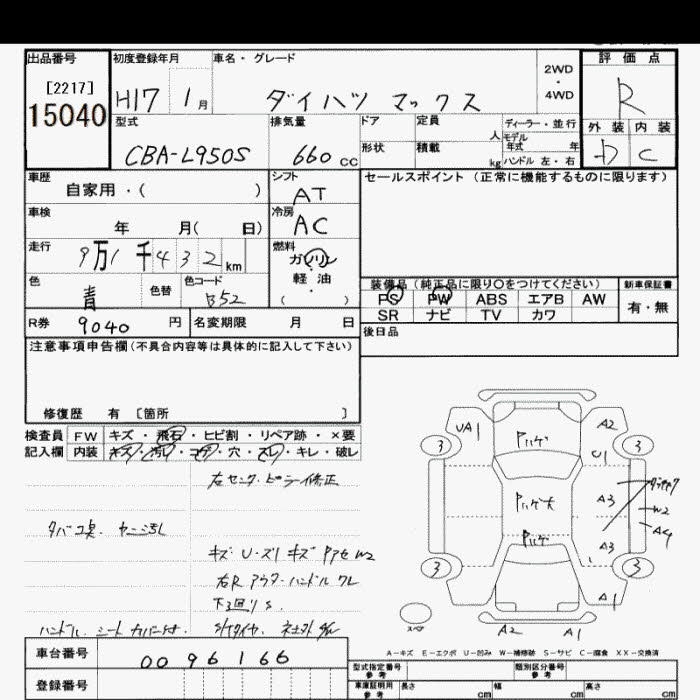 出品番号 初度登録年月 車名・グレード 2WD・4WD 評価点
[2217] H17 1月 ダイハツ マックス R
15040
型式 排気量 ドア 定員 人 ディーラー・並行 外装 内装
CBA-L950S 660cc 形状 積載 kg モデル年式 年 ハンドル 左・右 D C
車歴 シフト セールスポイント(正常に機能するものに限ります)
自家用・( ) AT
車検 冷房
年 月( 日) AC
走行 燃料
9万1千432km ガソリン・軽油
色 色替 色コード ( )
青 B52
装備品(純正品に限り〇をつけてください) 新車保証書
PS PW ABS エアB AW 有・無
SR ナビ TV カワ
R券 9040円 名変期限 月 日
後日品
注意事項申告欄(不具合内容等は具体的に記入して下さい)
修復歴 有 [箇所 ]
検査員 FW キズ・飛石・ヒビ割・リペア跡・×要
記入欄 内装 キズ・汚レ・コゲ・穴・スレ・キレ・破レ
右センターピラー修正
タバコ臭 ヤニ汚レ
キズ U・スリキズ W2
右R アウターハンドル ワレ
下廻りS
ハンドル シートカバー付
UA1 Pハゲ A2
3 U1 3
Pハゲ大 A3
W2
A4
Pハゲ A3
3 3
A1
スペア A2 A1
A-キズ E-エクボ U-凹み W-補修跡 S-サビ C-腐食 XX-交換済
車台番号 0096166
型式指定番号 参考 類別区分番号 参考
登録番号
車庫証明用 参考 長さ cm 幅 cm 高さ cm